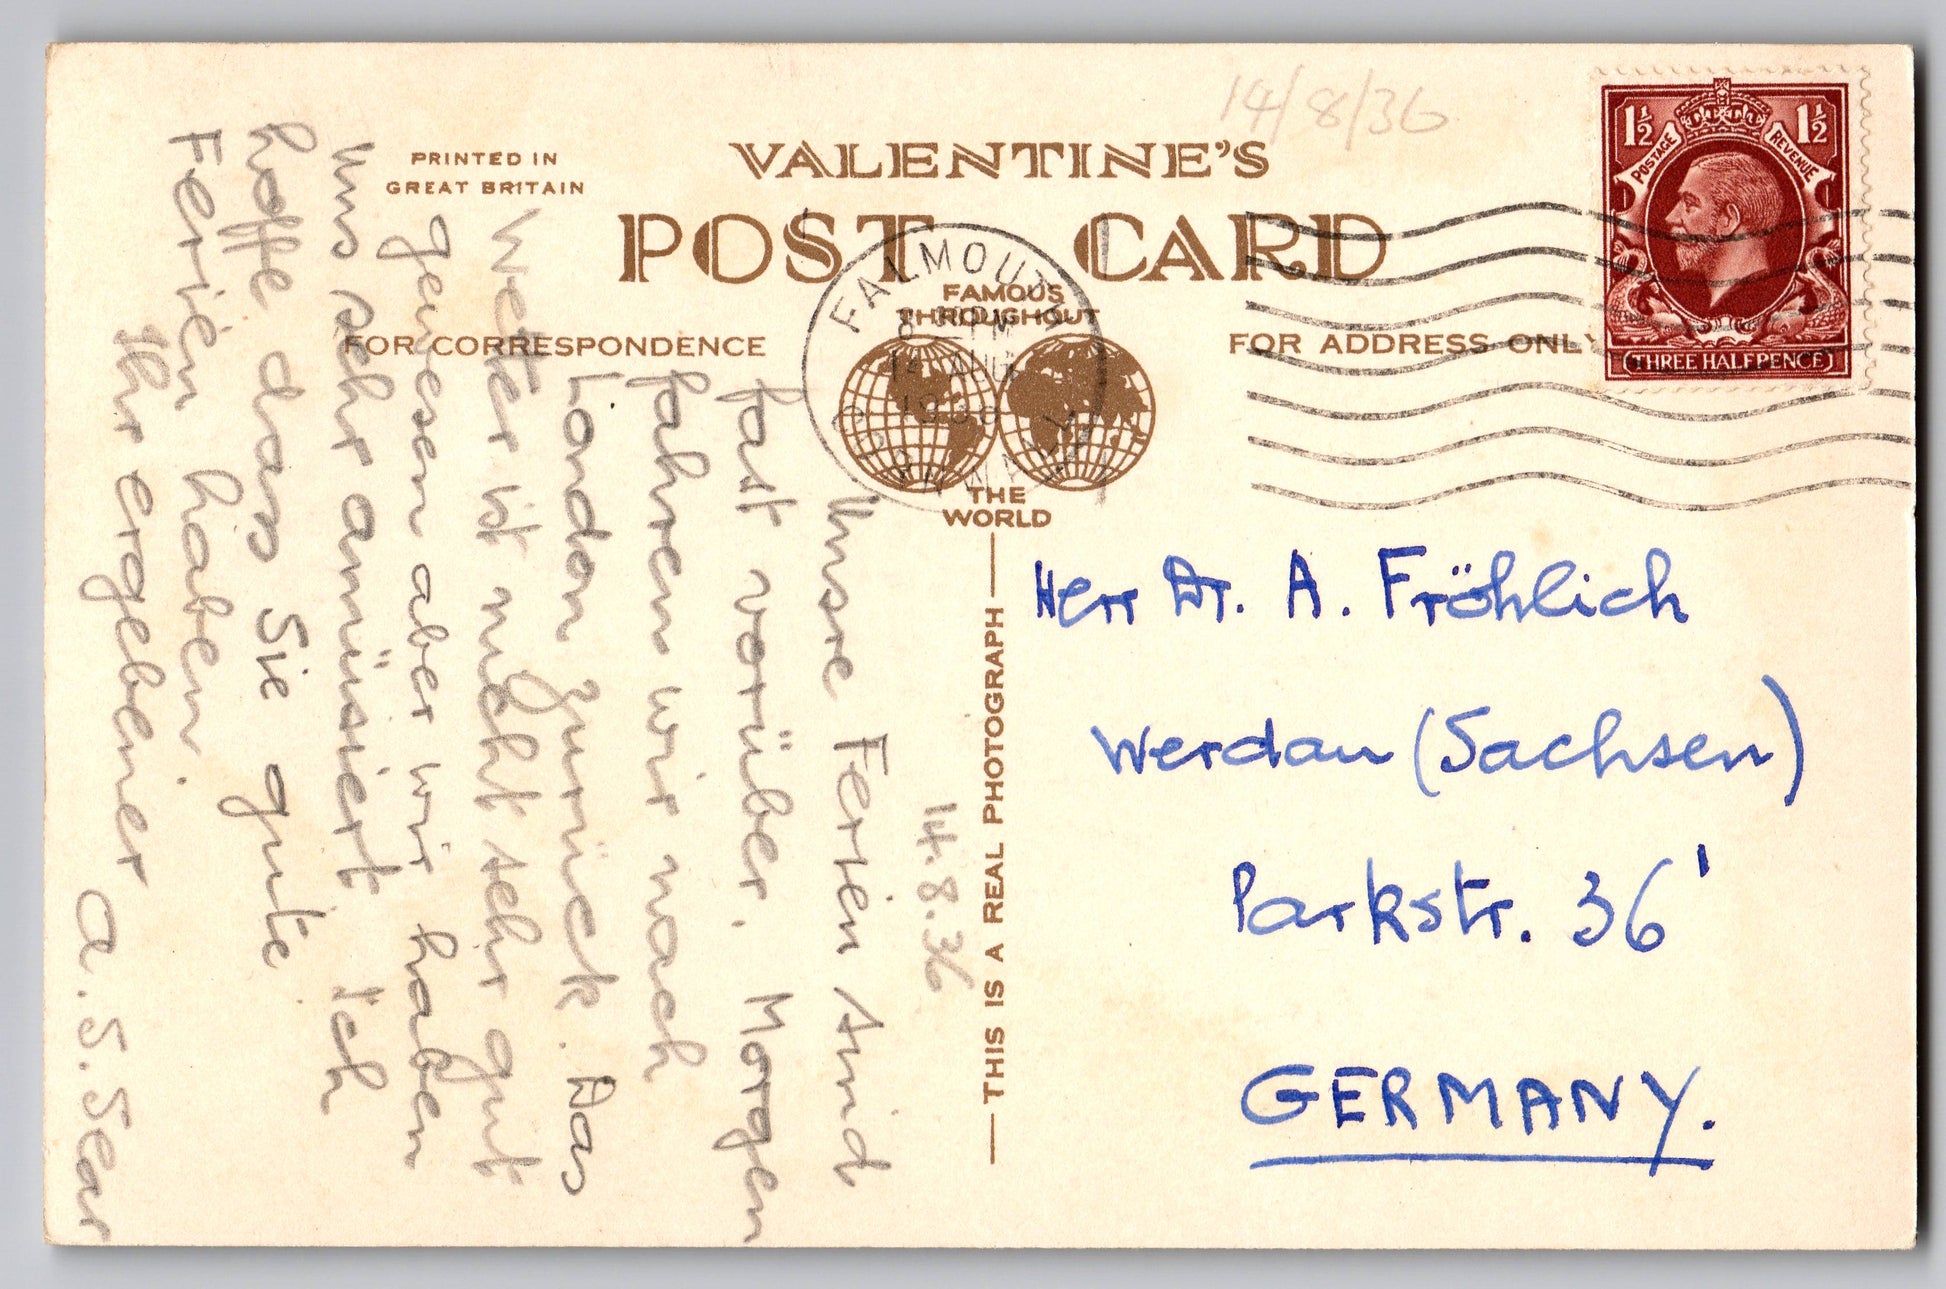 14/8/36
PRINTED IN
GREAT BRITAIN
VALENTINE'S
POST CARD
FAMOUS
THROUGHOUT
THE
WORLD
FOR CORRESPONDENCE
FOR ADDRESS ONLY
1½ 1½
POSTAGE REVENUE
THREE HALFPENCE
FALMOUTH
CORNWALL
8 PM
14 AUG
1936
THIS IS A REAL PHOTOGRAPH
14.8.36
Unsre Ferien sind
fast vorüber. Morgen
fahren wir nach
London zurück. Das
Wetter ist nicht sehr gut
gewesen aber wir haben
uns sehr amüsiert. Ich
hoffe dass Sie gute
Ferien haben.
Ihr ergebener
A. S. Sear
Herr Dr. A. Fröhlich
Werdau (Sachsen)
Parkstr. 36'
GERMANY.